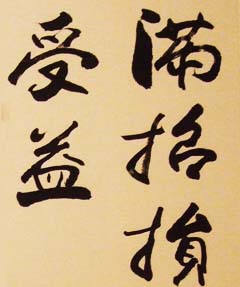 满招损
受益